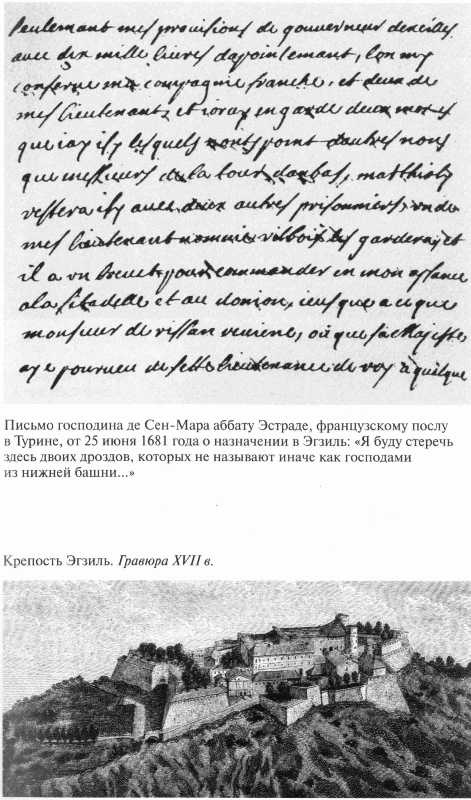 seulemant mes provisions de gouverneur dexilles
avec dix mille livres dapointemant, lon my
conserve ma compagnie franche, et deux de
mes lieutenants, et joray en garde deux merles
que jay isy lesquels nonts point dautres nons
que messieurs de la tour danbas, matthioly
restera isy avec deux autres prisonniers, un de
mes lieutenant nommé villebois les garderat, et
il a un brevet pour commander en mon assance
a la sitadelle et au donjon, jeusque a ceque
monsieur de rissan reviene, où que sa Majesté
aye pourveu de sette lieutenance de roy à quelque
Письмо господина де Сен-Мара аббату Эстраде, французскому послу
в Турине, от 25 июня 1681 года о назначении в Эгзиль: «Я буду стеречь
здесь двоих дроздов, которых не называют иначе как господами
из нижней башни...»
Крепость Эгзиль. Гравюра XVII в.